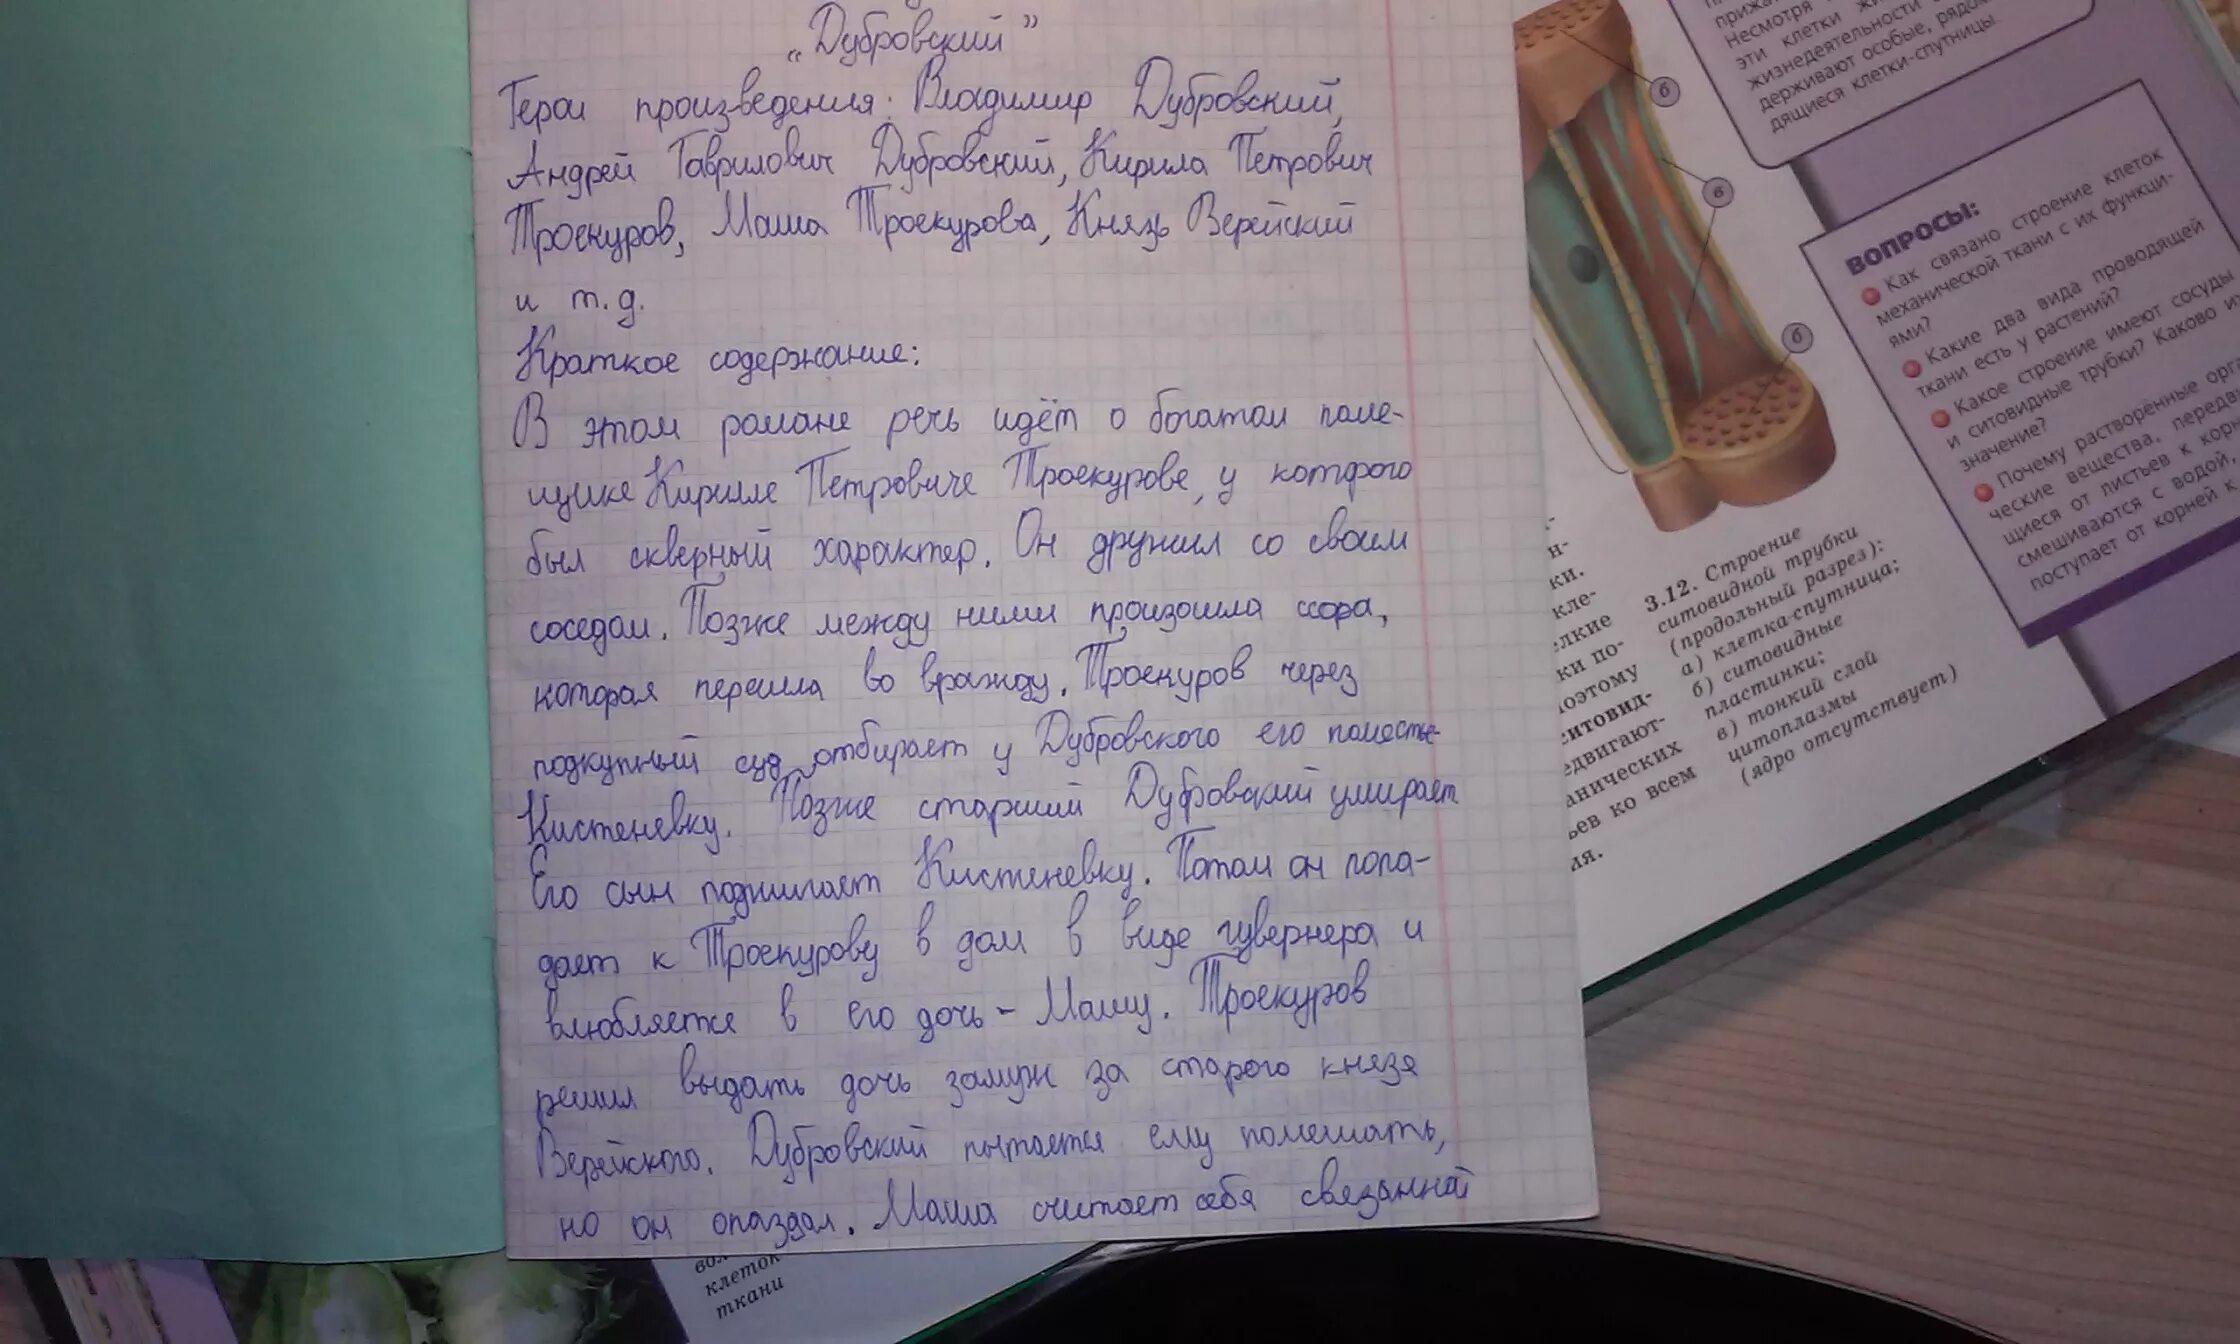 „Дубровский"
Герои произведения: Владимир Дубровский,
Андрей Гаврилович Дубровский, Кирила Петрович
Троекуров, Маша Троекурова, Князь Верейский
и т.д.
Краткое содержание:
В этом романе речь идёт о богатом поме-
щике Кирилле Петровиче Троекурове, у которого
был скверный характер. Он дружил со своим
соседом. Позже между ними произошла ссора,
которая перешла во вражду. Троекуров через
подкупный суд отбирает у Дубровского его поместье
Кистеневку. Позже старший Дубровский умирает
Его сын поджигает Кистеневку. Потом он попа-
дает к Троекурову в дом в виде гувернера и
влюбляется в его дочь - Машу. Троекуров
решил выдать дочь замуж за старого князя
Верейского. Дубровский пытается ему помешать,
но он опаздал. Маша считает себя связанной
Несмотря
эти клетки
жизнедеятельности
держивают особые, рядо
дящиеся клетки-спутницы.
б
в
б
ВОПРОСЫ:
Как связано строение клеток
механической ткани с их функци-
ями?
Какие два вида проводящей
ткани есть у растений?
Какое строение имеют сосуды
и ситовидные трубки? Каково их
значение?
Почему растворённые орга
ческие вещества, передви
щиеся от листьев к корн
смешиваются с водой,
поступает от корней к
3.12. Строение
ситовидной трубки
(продольный разрез):
а) клетка-спутница;
б) ситовидные
пластинки;
в) тонкий слой
цитоплазмы
(ядро отсутствует)
н-
ки.
кле-
елкие
ки по-
поэтому
ситовид-
едвигают-
анических
ьев ко всем
ия.
клеток
ткани